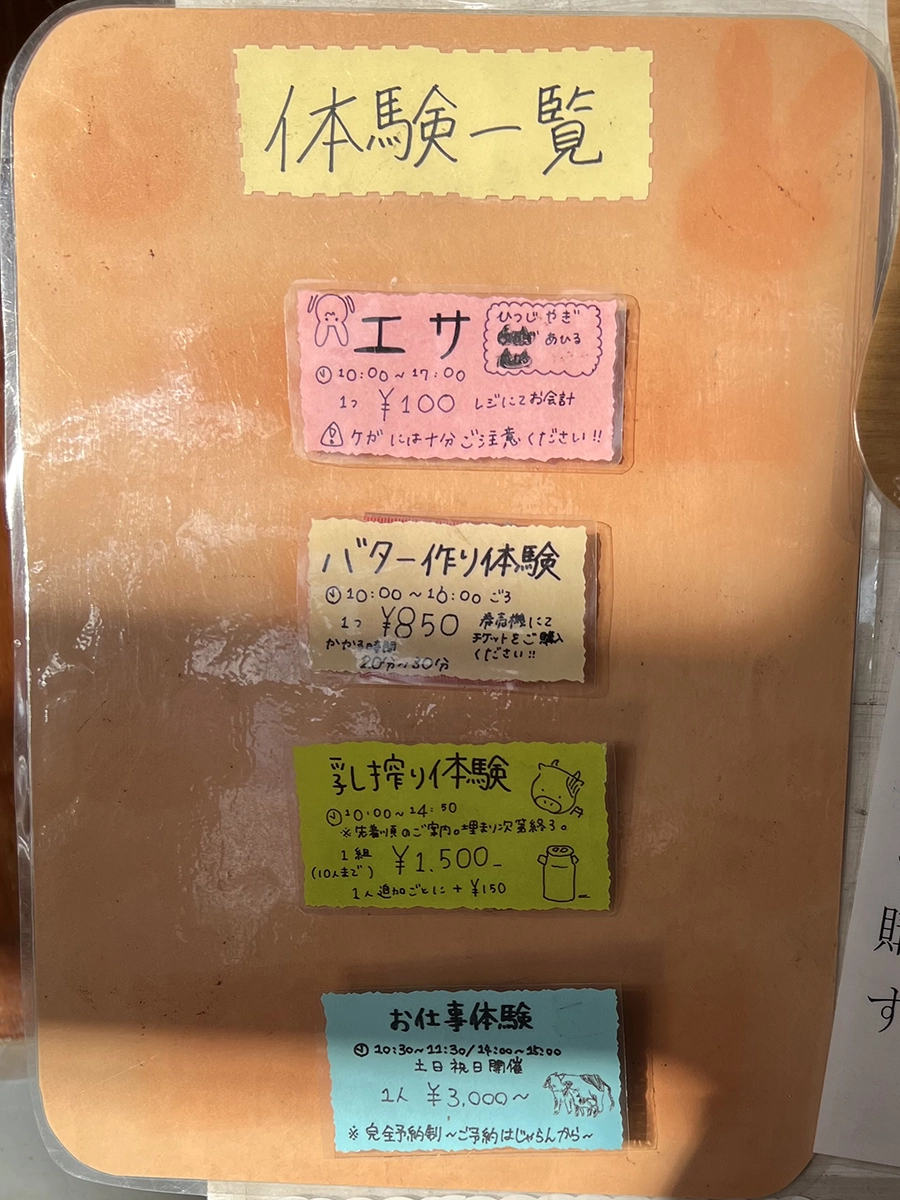 体験一覧
エサ
ひつじ やぎ
あひる
10:00~17:00
1つ ¥100 レジにてお会計
ケガには十分ご注意ください!!
バター作り体験
10:00~16:00ごろ
1つ ¥850
券売機にて
チケットをご購入
ください!!
かかる時間
20分~30分
乳し搾り体験
10:00~14:50
※先着順のご案内。埋まり次第終了。
1組 ¥1,500-
(10人まで)
1人追加ごとに+¥150
お仕事体験
10:30~11:30/14:00~15:00
土日祝日開催
1人 ¥3,000~
※完全予約制~ご予約はじゃらんから~
購
す